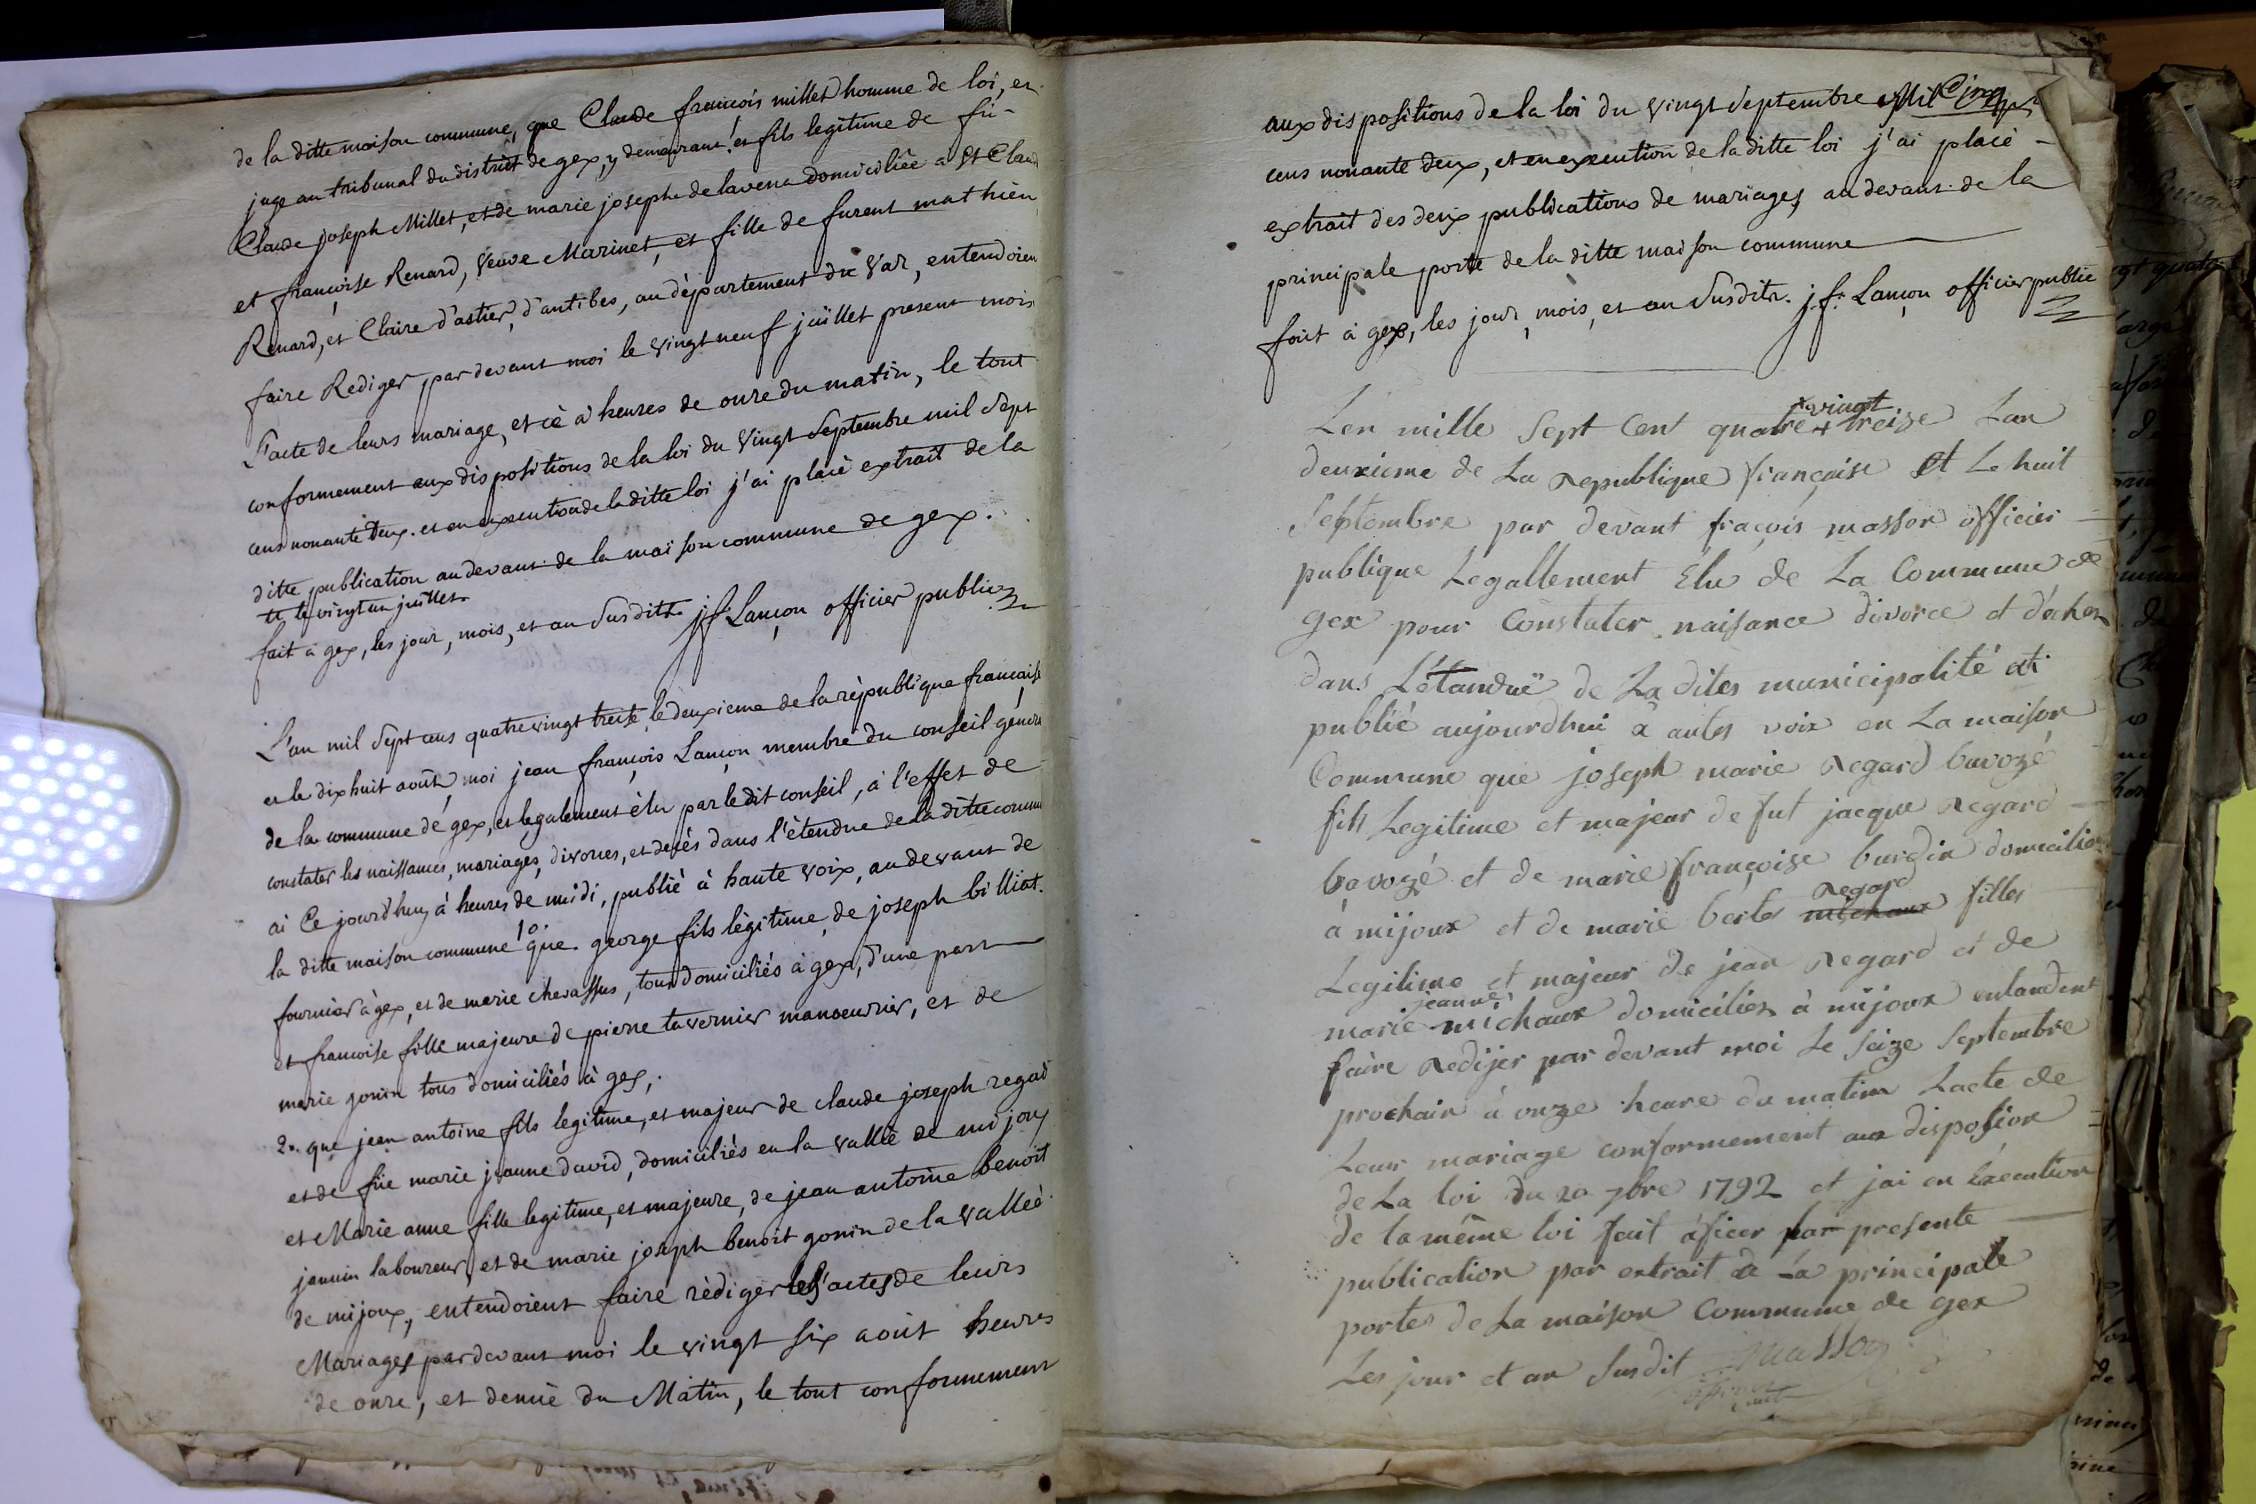 de la ditte maison commune, que Claude françois millet homme de loi, et
juge au tribunal du district de gex, y demeurant, et fils legitime de fû-
Claude joseph Millet, et de marie josephe delavena domiciliée a St Claud
et françoise Renard, veuve Marinet, et fille de furent mathieu
Renard, et Claire d'astier, d'antibes, au département du Var, entendoien
faire Rediger par devant moi le vingt neuf juïllet present mois
l'acte de leurs mariage, et cè à heures de onze du matin, le tout
conformement aux dispositions de la loi du vingt Septembre mil Sept
cens nonante deux. et en execution de la ditte loi j'ai placé extrait de la
ditte publication au devant de la maison commune de gex.
le vingt un juillet.
fait à gex, les jour, mois, et an Susditt. jf. Lançon officier public
L'an mil Sept cens quatre vingt treize, le deuxieme de la république française
et le dix huit août, moi jean françois Lançon membre du conseil génera
de la commune de gex, et legalement élu par le dit conseil, à l'effet de
constater les naissances, mariages, divorces, et decés dans l'étendue de la ditte commu
ai Ce jourd'huy à heures de midi, publié à haute voix, au devant de
la ditte maison commune 1° que george fils légitime de joseph billiat.
fournier à gex, et de marie chevassus, tous domiciliés à gex, d'une part
et françoise fille majeure de pierre tavernier manoeuvrier, et de
marie gonin tous domiciliés à gex,.
2°. que jean antoine fils legitime, et majeur de claude joseph regad
et de fûe marie jeanne david, domiciliés en la vallée de mijoux
et Marie anne fille legitime, et majeure, de jean antoine benoit
jeunin laboureur, et de marie joseph benoit gonin de la vallée
de mijoux, entendoient faire rédiger les actes de leurs
Mariages par devant moi le vingt six août heures
de onze, et demie du Matin, le tout conformement
aux dispositions de la loi du vingt Septembre Mil Sept
cens nonante deux, et en execution de la ditte loi j'ai placé -
extrait des deux publications de mariages au devant de la
principale porte de la ditte maison commune
fait à gex, les jour, mois, et an Susditt. j.f. Lançon officier public
Len mille Sept Cent quatre + treize Lan
+ vingt
deuxieme de La republique française et Le huit
Septembre par devant fraçois masson officier
publique Legallement Élu de La Commune de
gex pour Constater naisance divorce et déches
dans L'étanduë de La dites municipalité ati
publié aujourdhui a autes voix en La maison
Commune que joseph marie Regard bavozé
fils Legitime et majeur de fut jacque Regard
bavozé et de marie françoise burdin domicilies
à mijoux et de marie berte Regard filles
Legitime et majeur de jean Regard et de
marie jeanne michaux domicilies à mijoux entandent
faire Redijer par devant moi Le Seize Septembre
prochain à onze heure du matin Lacte de
Leur mariage conformement aux disposion
de La loi du 20 7bre 1792 et jai en Execution
de la même loi fait àficer par presente
publication par extrait a La principale
portes de La maison Commune de gex
Les jour et an Susdit Masson